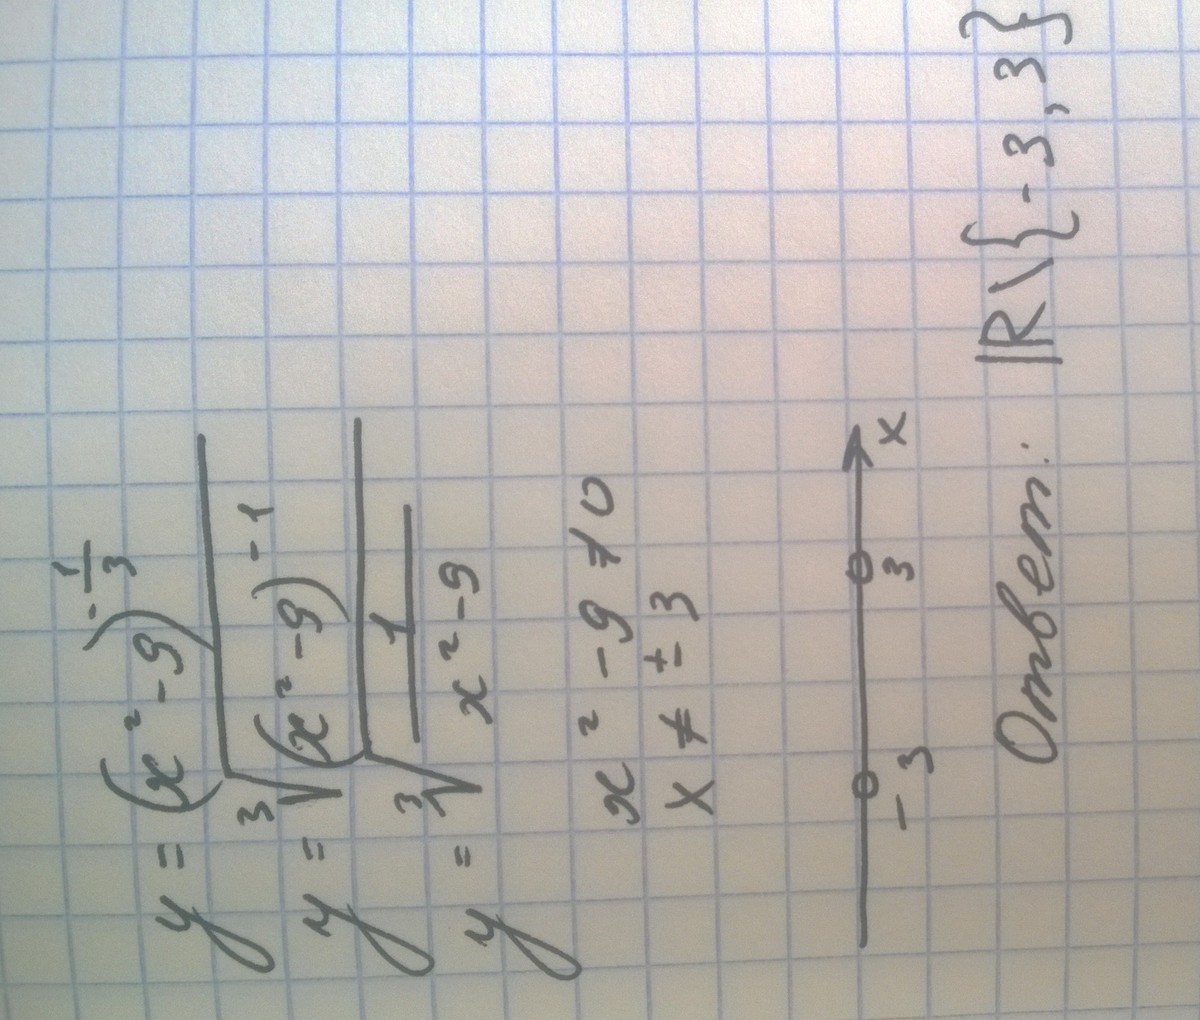 y = (x² - 9)^(-1/3)
y = ∛((x² - 9)^(-1))
y = ∛(1/(x² - 9))
x² - 9 ≠ 0
x ≠ ± 3
-3 3 x
Ответ: ℝ\{-3, 3}